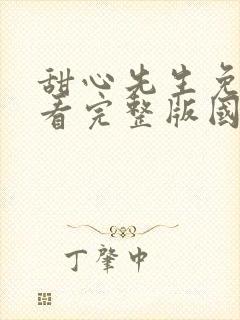 甜心先生免
看完整版國
丁肇中